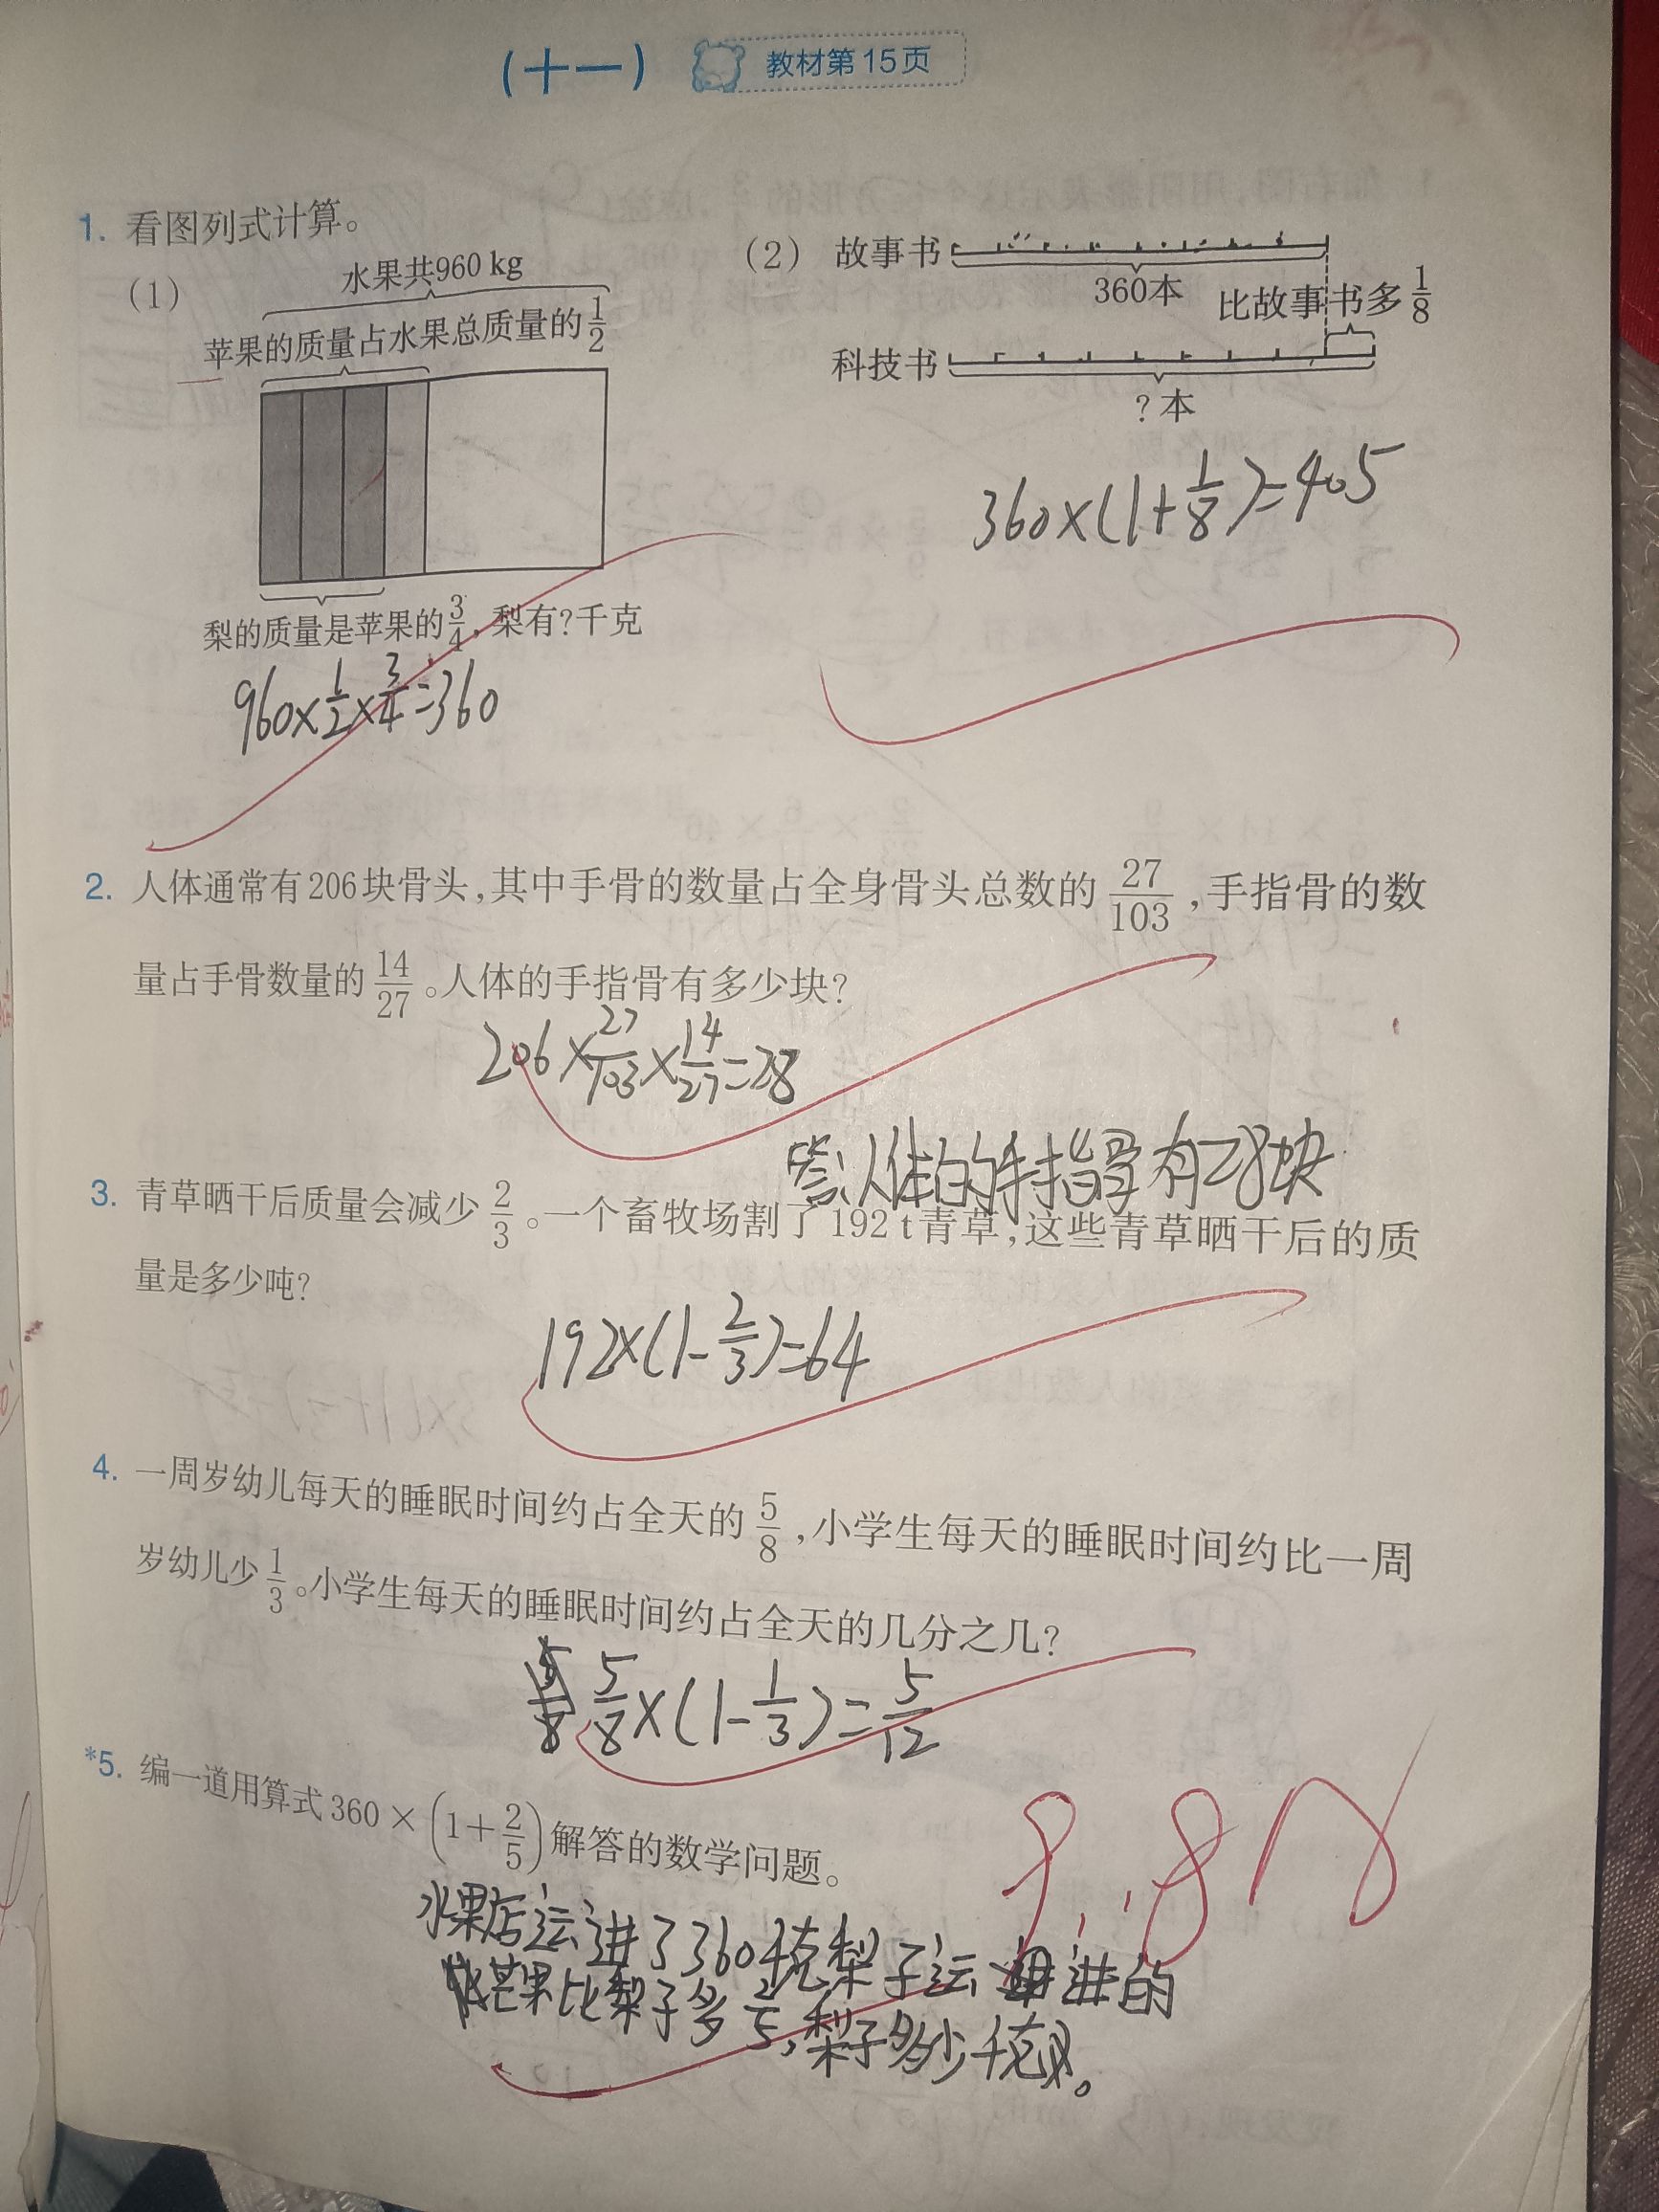 (十一) 教材第15页
1. 看图列式计算。
(1)
水果共960 kg
苹果的质量占水果总质量的1/2
梨的质量是苹果的3/4,梨有?千克
960×1/2×3/4=360
(2)
故事书
360本
比故事书多1/8
科技书
?本
360×(1+1/8)=405
2. 人体通常有206块骨头,其中手骨的数量占全身骨头总数的27/103,手指骨的数
量占手骨数量的14/27。人体的手指骨有多少块?
206×27/103×14/27=28
答:人体的手指骨有28块
3. 青草晒干后质量会减少2/3。一个畜牧场割了192 t青草,这些青草晒干后的质
量是多少吨?
192×(1-2/3)=64
4. 一周岁幼儿每天的睡眠时间约占全天的5/8,小学生每天的睡眠时间约比一周
岁幼儿少1/3。小学生每天的睡眠时间约占全天的几分之几?
5/8×(1-1/3)=5/12
*5. 编一道用算式360×(1+2/5)解答的数学问题。
水果店运进了360千克梨子运进的
芒果比梨子多2/5,梨子多少千克。
9.8